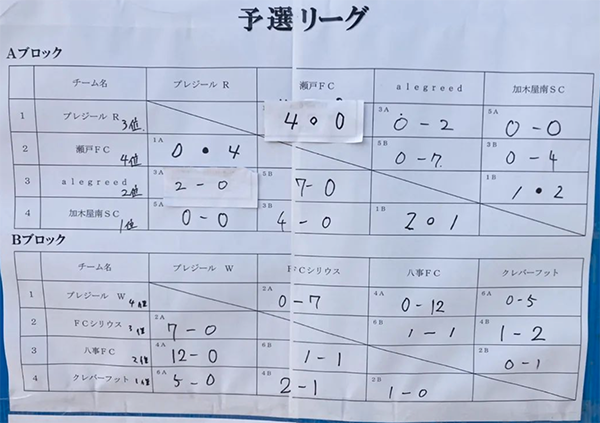 予選リーグ
Aブロック
チーム名 プレジール R 瀬戸FC alegreed 加木屋南SC
1 プレジール R 3位 4 o 0 3A 0 - 2 5A 0 - 0
2 瀬戸FC 4位 1A 0 • 4 5B 0 - 7 3B 0 - 4
3 alegreed 2位 3A 2 - 0 5B 7 - 0 1B 1 • 2
4 加木屋南SC 1位 5A 0 - 0 3B 4 - 0 1B 2 o 1
Bブロック
チーム名 プレジール W FCシリウス 八事FC クレバーフット
1 プレジール W 4位 2A 0 - 7 4A 0 - 12 6A 0 - 5
2 FCシリウス 3位 2A 7 - 0 6B 1 - 1 4B 1 - 2
3 八事FC 2位 4A 12 - 0 6B 1 - 1 2B 0 - 1
4 クレバーフット 1位 6A 5 - 0 4B 2 - 1 2B 1 - 0